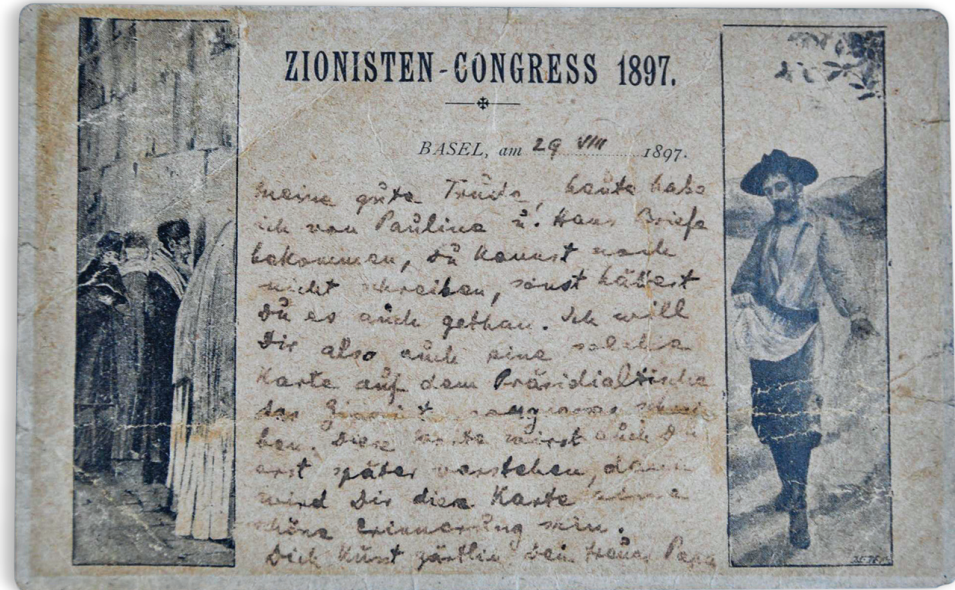 ZIONISTEN-CONGRESS 1897.
BASEL, am 29 VIII 1897.
Meine gute Trude, heute habe
ich von Pauline u. Hans Briefe
bekommen, Du kannst noch
nicht schreiben, sonst hättest
Du es auch gethan. Ich will
Dir also auch eine solche
Karte auf dem Präsidialtische
des
ben. Diese Karte wirst auch Du
erst später verstehen, dann
wird Dir diese Karte eine
schöne Erinnerung sein.
Dich küsst zärtlich Dein treuer Papa